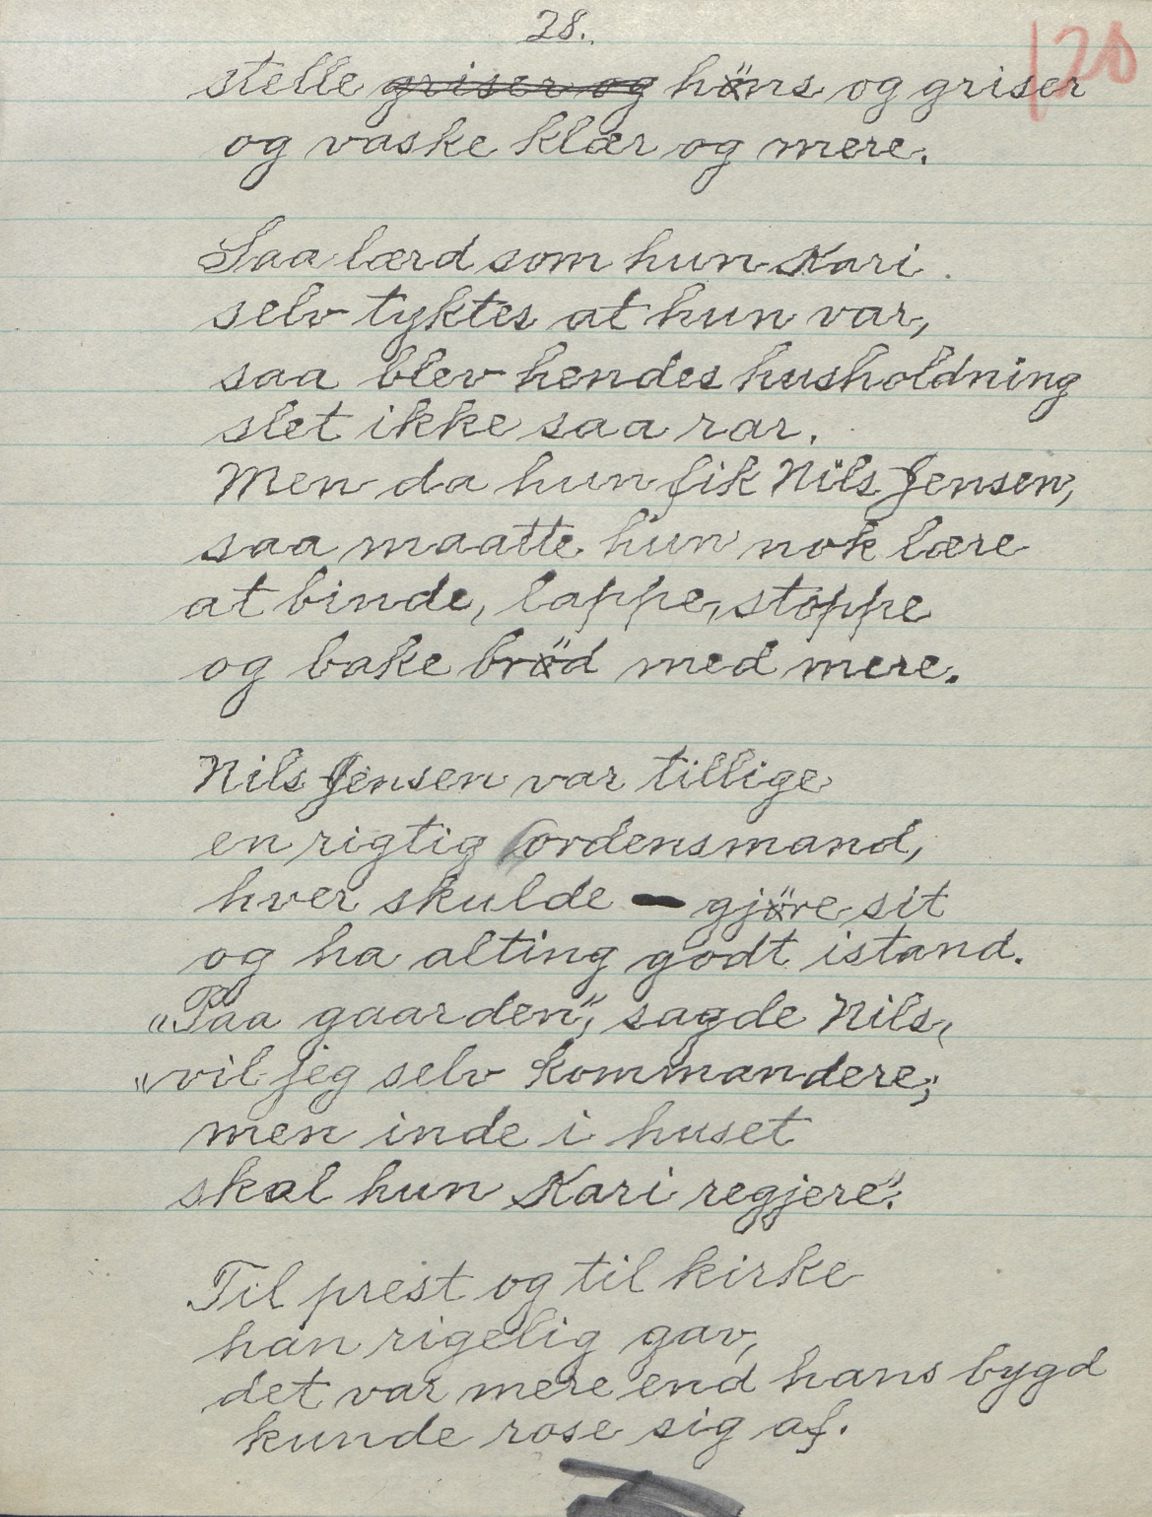 28.
120
stelle griser og höns og griser
og vaske klær og mere.
Saa lærd som hun Kari
selv tyktes at hun var,
saa blev hendes husholdning
slet ikke saa rar.
Men da hun fik Nils Jensen,
saa maatte hun nok lære
at binde, lappe, stoppe
og bake bröd med mere.
Nils Jensen var tillige
en rigtig ordensmand,
hver skulde – gjöre sit
og ha alting godt istand.
"Paa gaarden", sagde Nils,
"vil jeg selv kommandere,
men inde i huset
skal hun Kari regjere".
Til prest og til kirke
han rigelig gav,
det var mere end hans bygd
kunde rose sig af.